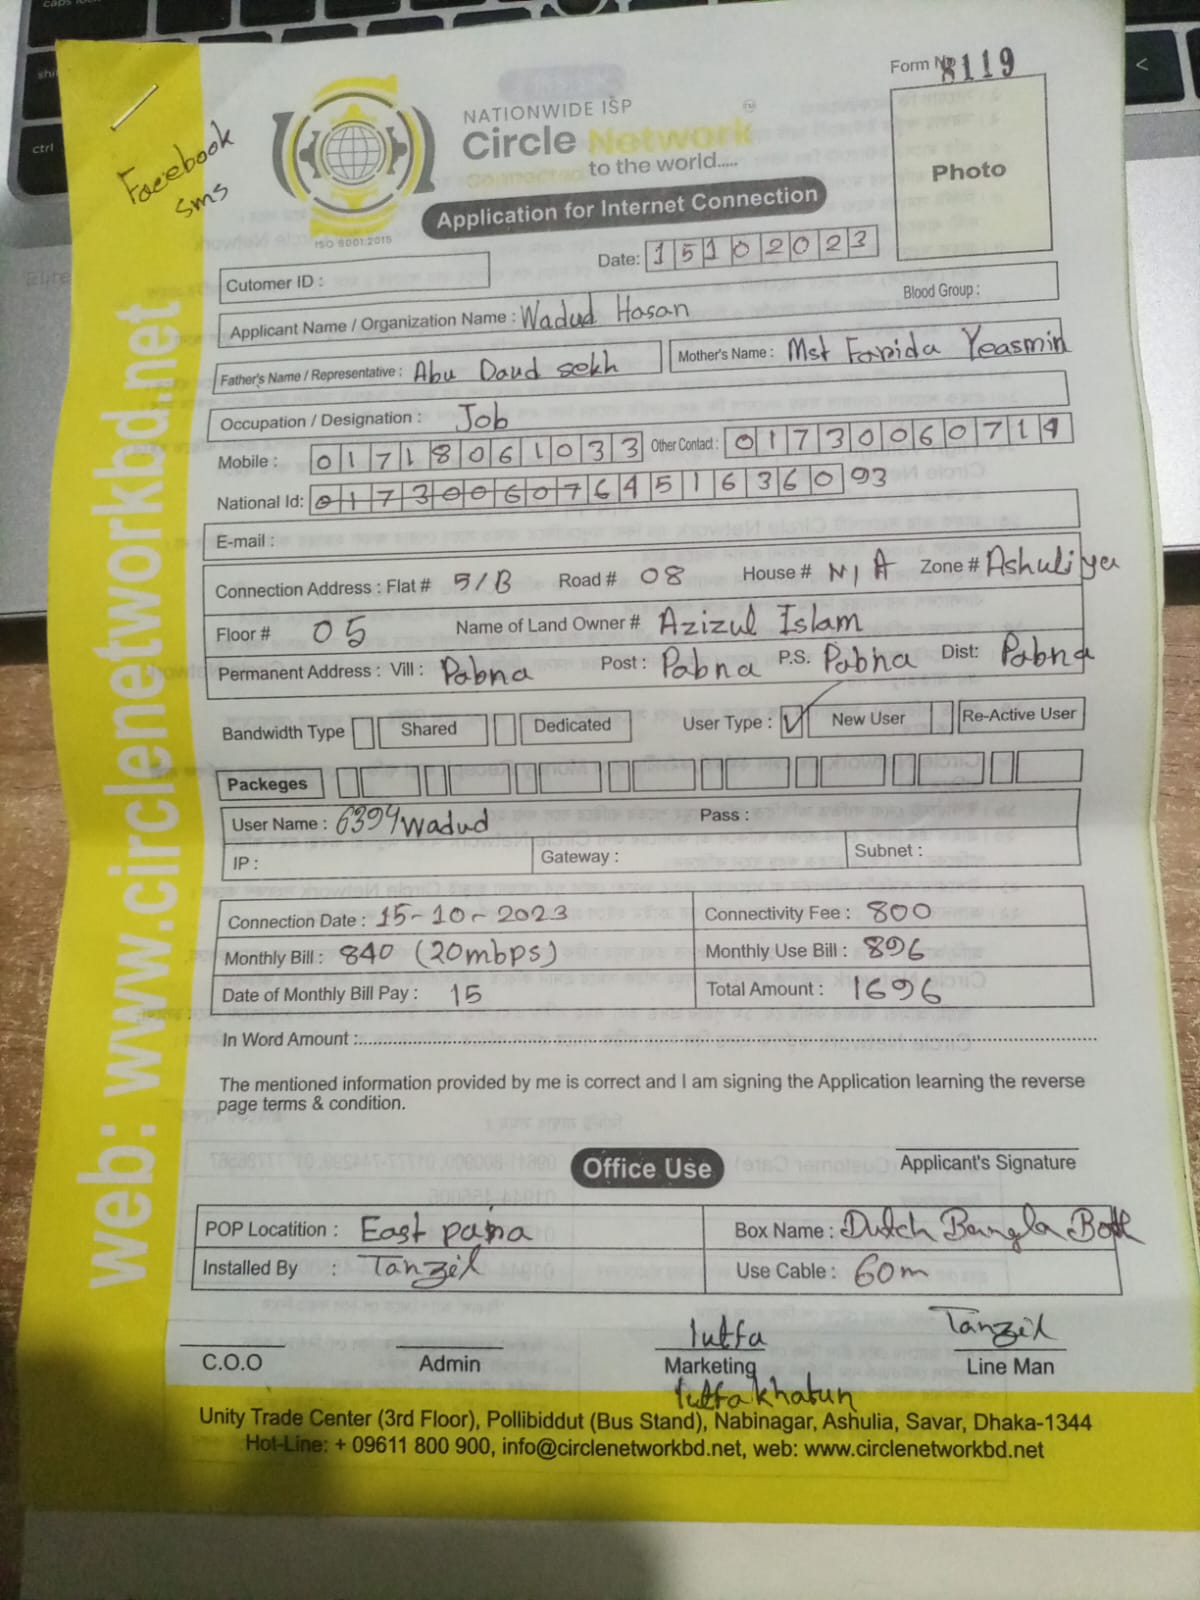 Form No 8119
Facebook
sms
NATIONWIDE ISP
Circle Network
Connected to the world.....
ISO 9001:2015
Application for Internet Connection
Photo
Date: 15102023
Cutomer ID :
Applicant Name / Organization Name : Wadud Hasan Blood Group :
Father's Name / Representative : Abu Daud sekh Mother's Name : Mst Farida Yeasmin
Occupation / Designation : Job
Mobile : 01718061033 Other Contact : 01730060714
National Id: 017300607645163609 3
E-mail :
Connection Address : Flat # 5/B Road # 08 House # N/A Zone # Ashuliya
Floor # 05 Name of Land Owner # Azizul Islam
Permanent Address : Vill : Pabna Post : Pabna P.S. Pabna Dist: Pabna
Bandwidth Type Shared Dedicated User Type : ✓ New User Re-Active User
Packeges
User Name : 6394wadud Pass :
IP : Gateway : Subnet :
Connection Date : 15-10-2023 Connectivity Fee : 800
Monthly Bill : 840 (20mbps) Monthly Use Bill : 896
Date of Monthly Bill Pay : 15 Total Amount : 1696
In Word Amount :
The mentioned information provided by me is correct and I am signing the Application learning the reverse
page terms & condition.
Office Use
Applicant's Signature
POP Locatition : East para Box Name : Dutch Bangla Both
Installed By : Tanzil Use Cable : 60m
lutfa Tanzil
C.O.O Admin Marketing Line Man
lutfa khatun
Unity Trade Center (3rd Floor), Pollibiddut (Bus Stand), Nabinagar, Ashulia, Savar, Dhaka-1344
Hot-Line: + 09611 800 900, info@circlenetworkbd.net, web: www.circlenetworkbd.net
web: www.circlenetworkbd.net